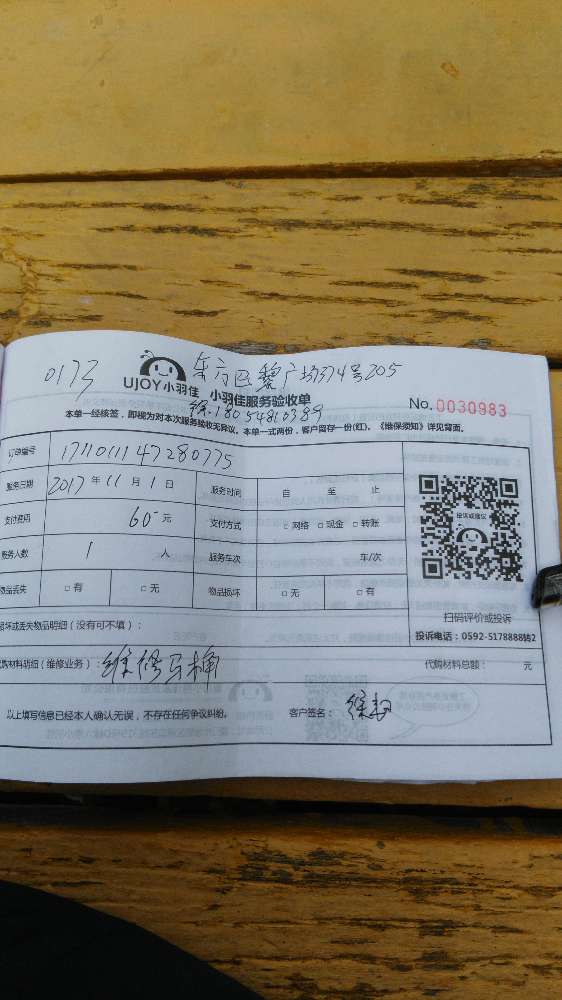 0173 东方巴黎广场374号205
UJOY小羽佳 小羽佳服务验收单 No.0030983
徐.18054810389
本单一经核签，即视为对本次服务验收无异议。本单一式两份，客户留存一份(红)。《维保须知》详见背面。
订单编号 1711011147280775
服务日期 2017年11月1日 服务时间 自 至 止
支付费用 60 元 支付方式 □网络 □现金 □转账
服务人数 1 人 服务车次 车/次
物品丢失 □有 □无 物品损坏 □无 □有
投诉或建议
扫码评价或投诉
投诉电话：0592-5178888转2
损坏或丢失物品明细（没有可不填）：
代购材料明细（维修业务）：维修马桶 代购材料总额： 元
以上填写信息已经本人确认无误，不存在任何争议纠纷。 客户签名：徐